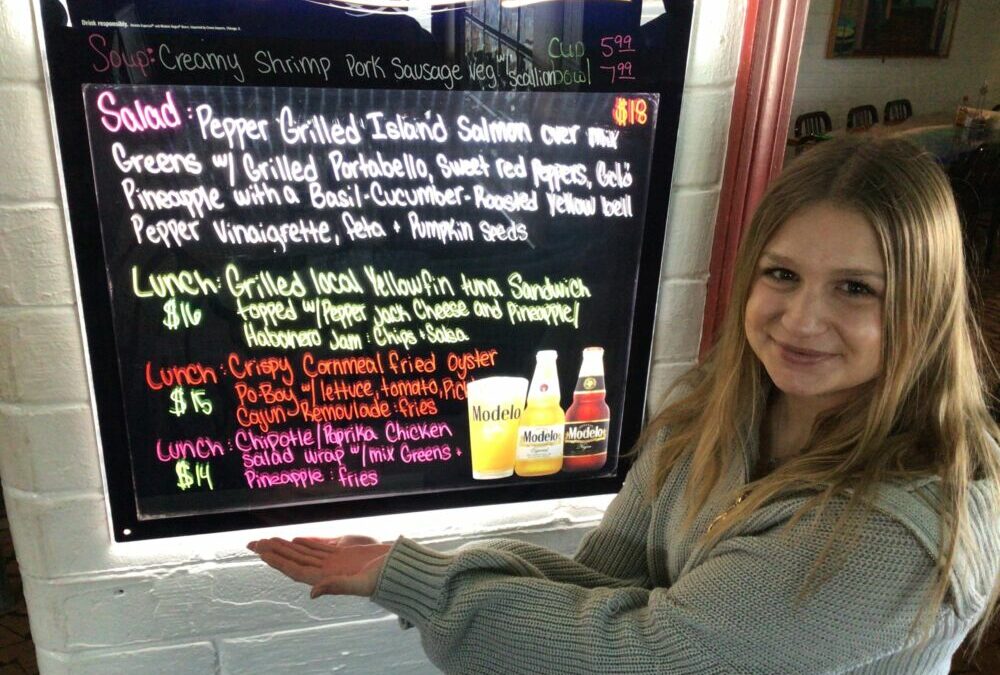 Drink responsibly.
Soup: Creamy Shrimp Pork Sausage Veg w/ scallion
Cup 5⁹⁹
Bowl 7⁹⁹
Salad: Pepper Grilled Island Salmon over mix $18
Greens w/ Grilled Portabello, Sweet red Peppers, Gold
Pineapple with a Basil-Cucumber-Roasted Yellow bell
Pepper Vinaigrette, feta + Pumpkin Seeds
Lunch: Grilled local Yellowfin tuna Sandwich
$16 topped w/Pepper Jack Cheese and Pineapple/
Habanero Jam: Chips + Salsa
Lunch: Crispy Cornmeal fried Oyster
$15 Po-Boy w/lettuce, tomato,
Cajun Remoulade: fries
Lunch: Chipotle/Paprika Chicken
$14 Salad wrap w/mix Greens +
Pineapple: fries
Modelo
Modelo
Modelo